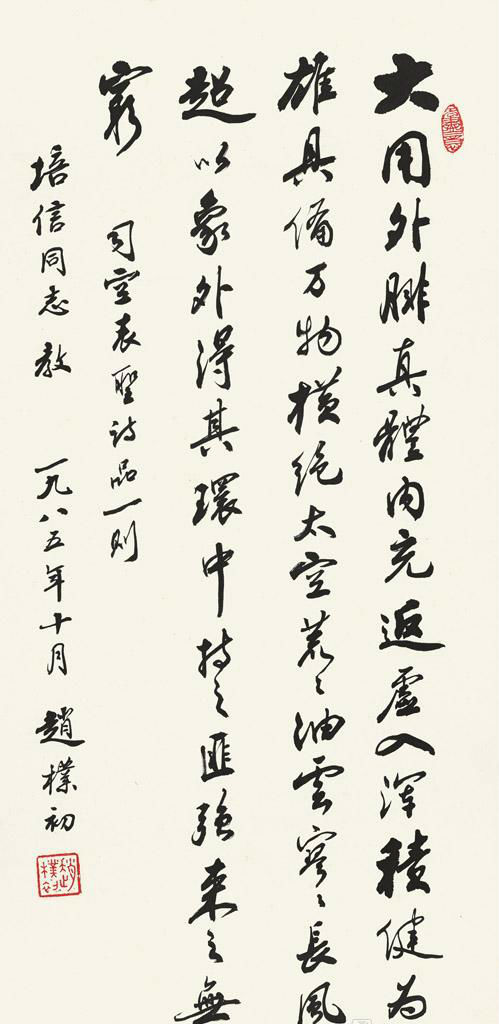 大用外腓真體内充返虛入渾積健为
雄具備万物橫绝太空荒〻油雲寥〻長風
超以象外得其環中持之匪強来之無
窮
司空表聖诗品一则
培信同志教
一九八五年十月 趙樸初
趙樸初